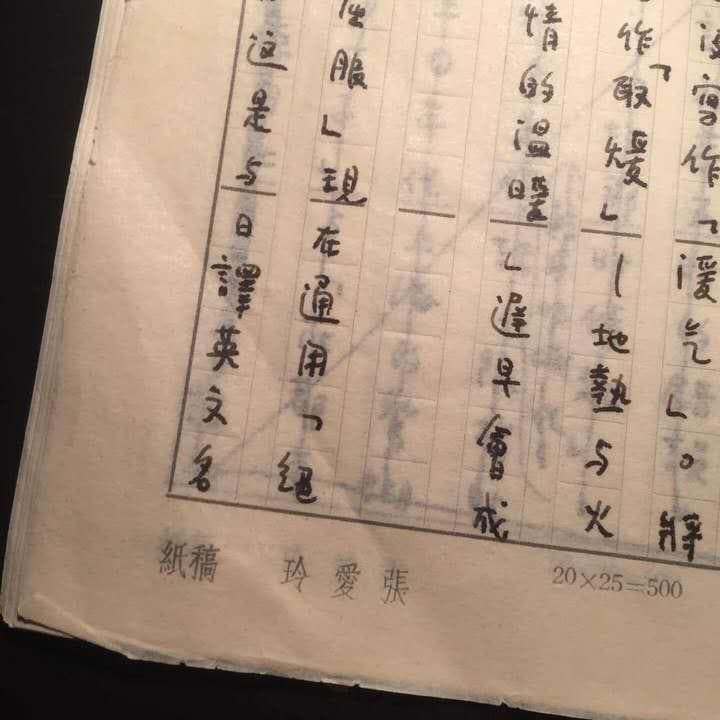 寫作「湲气」。將
作「取煖」—地熱与火
情的溫暖」遲早會成
服」現在通用「絕
這是与日譯英文名
20×25=500
張愛玲 稿紙